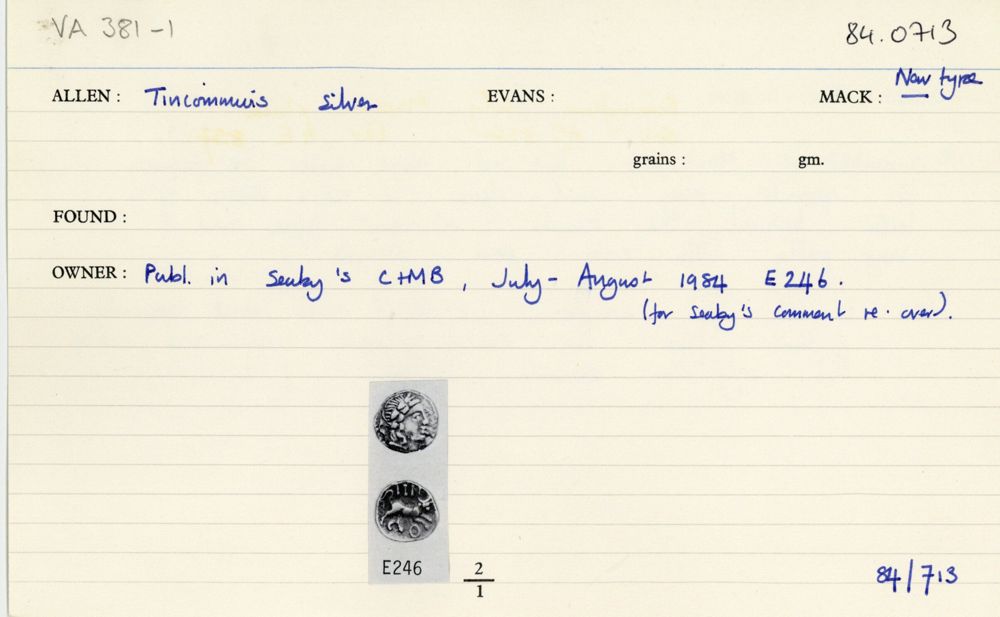 VA 381-1
84.0713
ALLEN : Tincommius silver EVANS : MACK : New type
grains : gm.
FOUND :
OWNER : Publ. in Seaby's C+MB, July - August 1984 E246.
(for Seaby's comment re. over).
E246
2
1
84/713